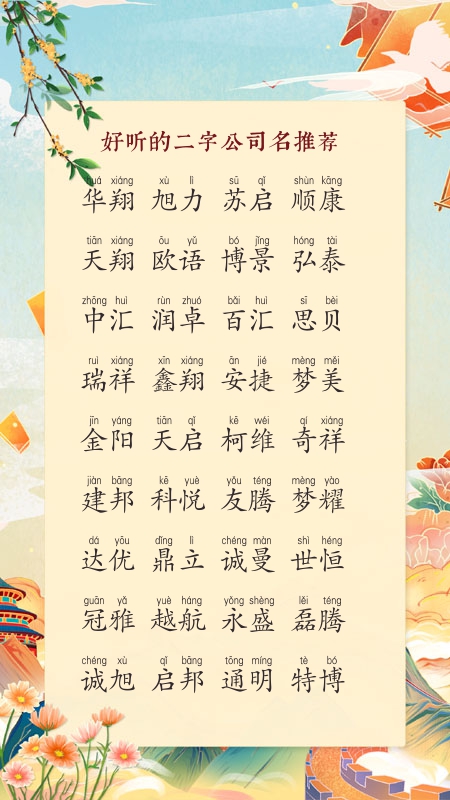 好听的二字公司名推荐
huá xiáng xù lì sū qǐ shùn kāng
华翔 旭力 苏启 顺康
tiān xiáng ōu yǔ bó jǐng hóng tài
天翔 欧语 博景 弘泰
zhōng huì rùn zhuó bǎi huì sī bèi
中汇 润卓 百汇 思贝
ruì xiáng xīn xiáng ān jié mèng měi
瑞祥 鑫翔 安捷 梦美
jīn yáng tiān qǐ kē wéi qí xiáng
金阳 天启 柯维 奇祥
jiàn bāng kē yuè yǒu téng mèng yào
建邦 科悦 友腾 梦耀
dá yōu dǐng lì chéng màn shì héng
达优 鼎立 诚曼 世恒
guān yǎ yuè háng yǒng shèng lěi téng
冠雅 越航 永盛 磊腾
chéng xù qǐ bāng tōng míng tè bó
诚旭 启邦 通明 特博